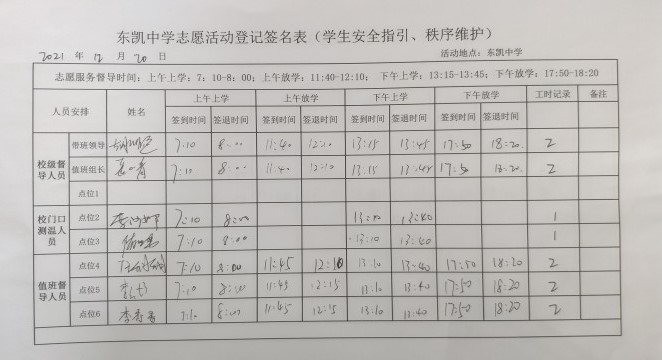 东凯中学志愿活动登记签名表（学生安全指引、秩序维护）
2021 年 12 月 20 日 活动地点：东凯中学
志愿服务督导时间：上午上学：7：10-8：00；上午放学：11:40-12:10； 下午上学：13:15-13:45；下午放学：17:50-18:20
人员安排 姓名 上午上学 上午放学 下午上学 下午放学 工时记录 备注
签到时间 签退时间 签到时间 签退时间 签到时间 签退时间 签到时间 签退时间
校级督导人员 带班领导 7:10 8:00 11:40 12:10 13:15 13:45 17:50 18:20 2
值班组长 7:10 8:00 11:40 12:10 13:15 13:45 17:50 18:20 2
点位1
校门口测温人员 点位2 7:10 8:00 13:10 13:40 1
点位3 7:10 8:00 13:10 13:40 1
值班督导人员 点位4 7:10 8:00 11:45 12:10 13:10 13:40 17:50 18:20 2
点位5 7:10 8:00 11:45 12:15 13:10 13:40 17:50 18:20 2
点位6 7:10 8:00 11:45 12:15 13:10 13:40 17:50 18:20 2